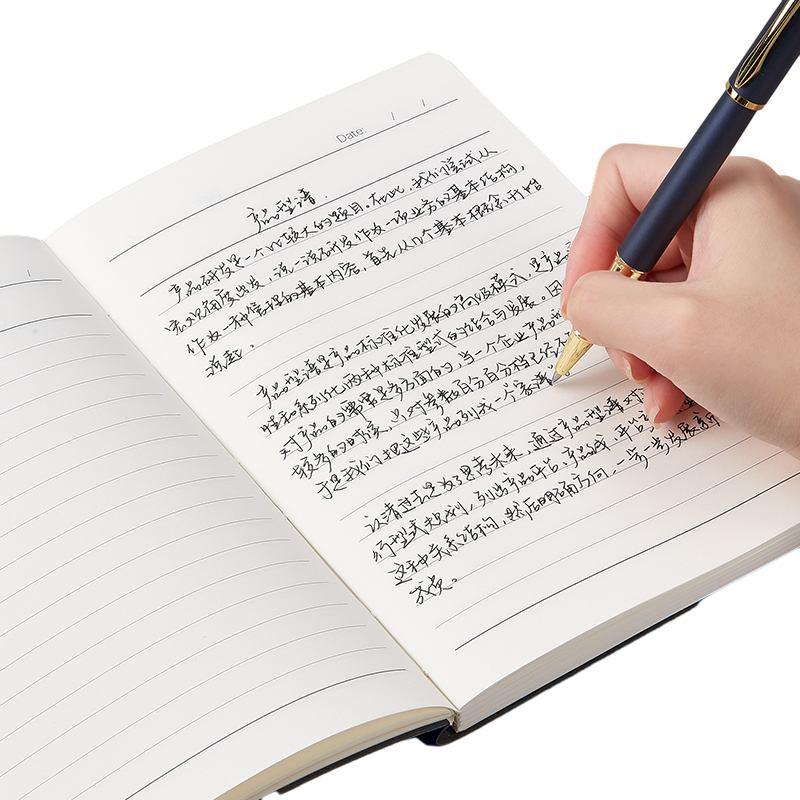 Date: / /
产品型谱.
产品研发是一个比较大的题目。在此，我们尝试从
宏观角度出发，说一说研发作为一项业务的基本结构，
作为一种管理的基本内容，首先从几个基本概念开始
说起。
产品型谱是产品标准化发展的高级模式，是产品
性和系列化两种标准型式的结合与发展。因
对产品的需求是多方面的，当一个企业产品
较多的时候，只对参数百分百分档已经不
于是我们把这些产品列成一个家谱。
认清过去是为了思考未来，通过产品型谱对
行型式规划，列出产品平台、产品线、平台
这种关系结构，然后明确方向，一步一步发展